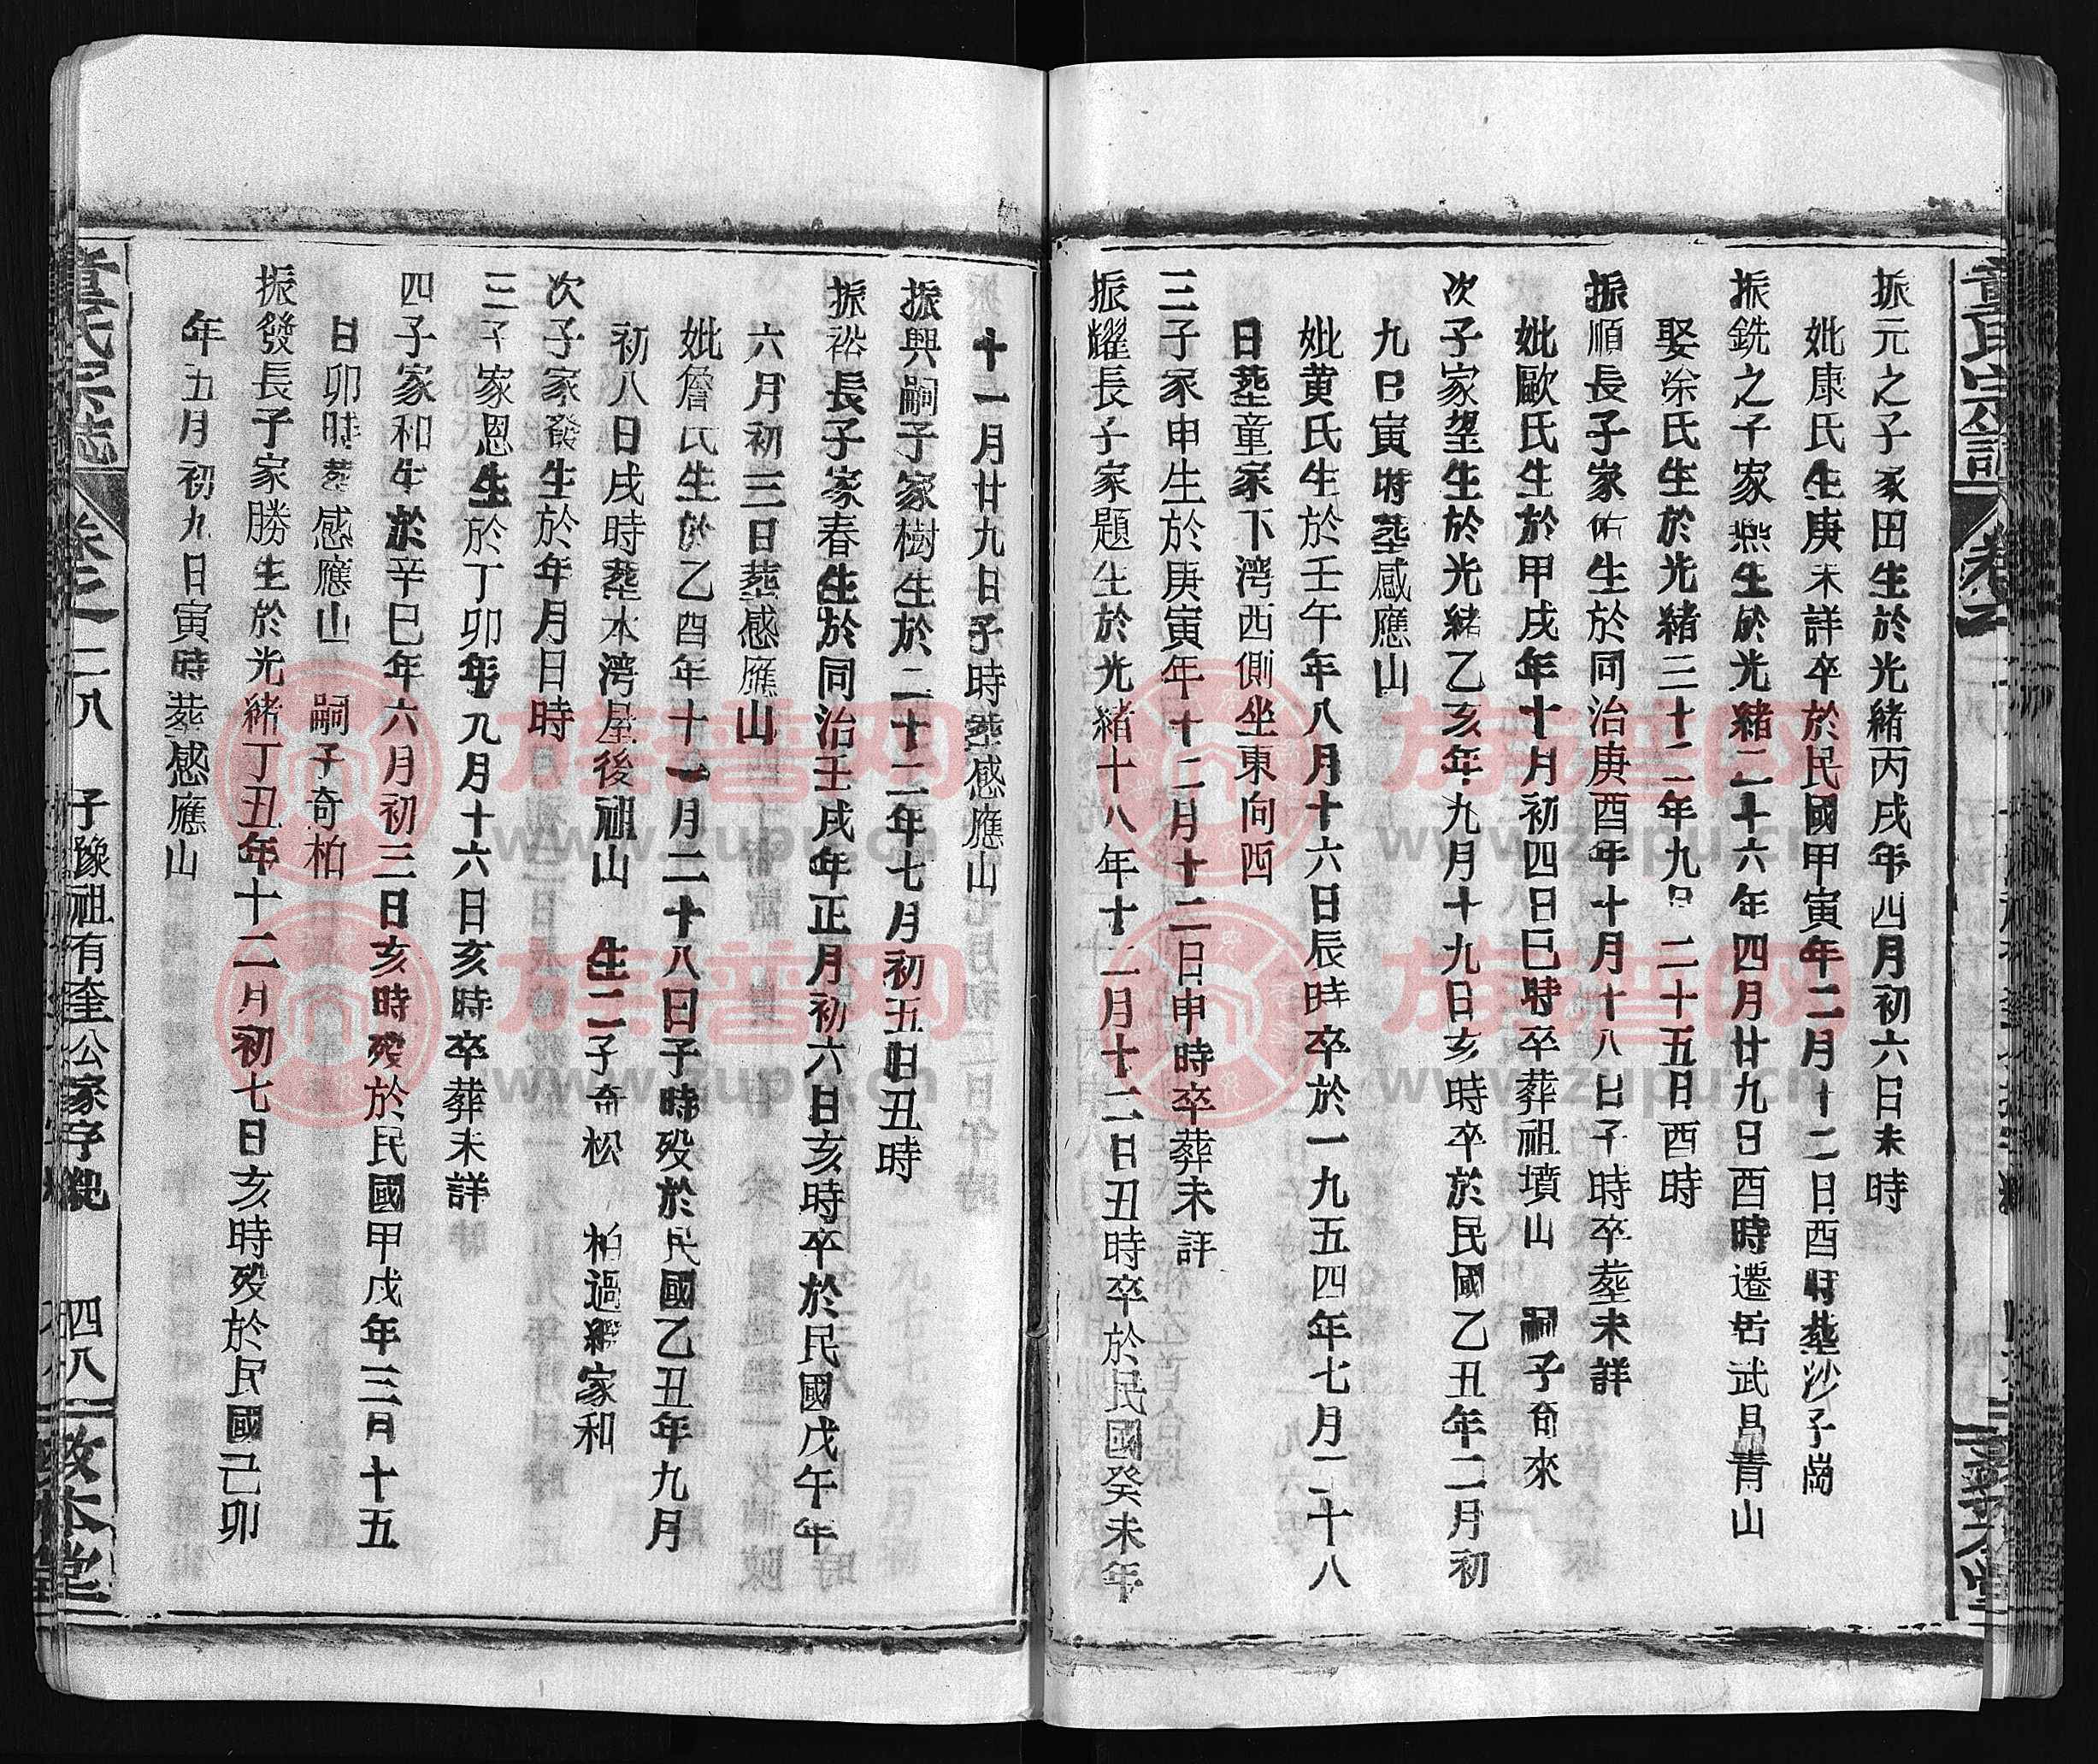 振元之子家田生於光緒丙戌年四月初六日未時
妣康氏生庚未詳卒於民國甲寅年二月十二日酉時塟沙子崗
振銑之子家燕生於光緒二十六年四月廿九日酉時遷居武昌青山
娶涂氏生於光緒三十二年九月二十五日酉時
振順長子家佑生於同治庚酉年十月十八日子時卒塟未詳
妣歐氏生於甲戌年十月初四日巳時卒葬祖墳山 嗣子奇來
次子家望生於光緒乙亥年九月十九日亥時卒於民國乙丑年二月初
九日寅時塟感應山
妣黃氏生於壬午年八月十六日辰時卒於一九五四年七月二十八
日塟童家下湾西側坐東向西
三子家申生於庚寅年十二月十二日申時卒葬未詳
振耀長子家題生於光緒十八年十二月十二日丑時卒於民國癸未年
十一月廿九日子時塟感應山
振興嗣子家樹生於二十二年七月初五日丑時
振裕長子家春生於同治壬戌年正月初六日亥時卒於民國戊午年
六月初三日塟感應山
妣詹氏生於乙酉年十一月二十八日子時歿於民國乙丑年九月
初八日戌時塟本湾屋後祖山 生二子奇松 柏過繼家和
次子家發生於年月日時
三子家恩生於丁卯年九月十六日亥時卒葬未詳
四子家和生於辛巳年六月初三日亥時歿於民國甲戌年三月十五
日卯時塟感應山 嗣子奇柏
振發長子家勝生於光緒丁丑年十二月初七日亥時歿於民國己卯
年五月初九日寅時塟感應山
童氏宗誌 卷之二八 子豫祖有奎公家字派 四八 敦本堂
族普网
www.zupu.cn
族普网
www.zupu.cn
族普网
www.zupu.cn
族普网
www.zupu.cn